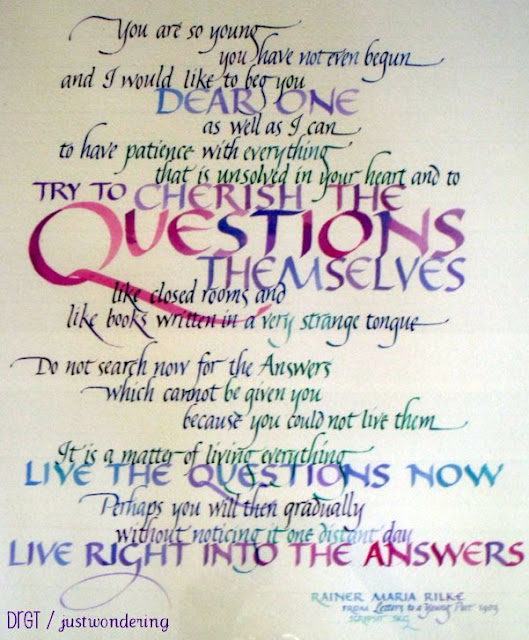 You are so young
you have not even begun
and I would like to beg you
DEAR ONE
as well as I can
to have patience with everything
that is unsolved in your heart and to
TRY TO CHERISH THE
QUESTIONS
THEMSELVES
like closed rooms and
like books written in a very strange tongue
Do not search now for the Answers
which cannot be given you
because you could not live them
It is a matter of living everything
LIVE THE QUESTIONS NOW
Perhaps you will then gradually
without noticing it one distant day
LIVE RIGHT INTO THE ANSWERS
RAINER MARIA RILKE
FROM Letters to a Young Poet 1903
SCRIPSIT
DrGT / justwondering